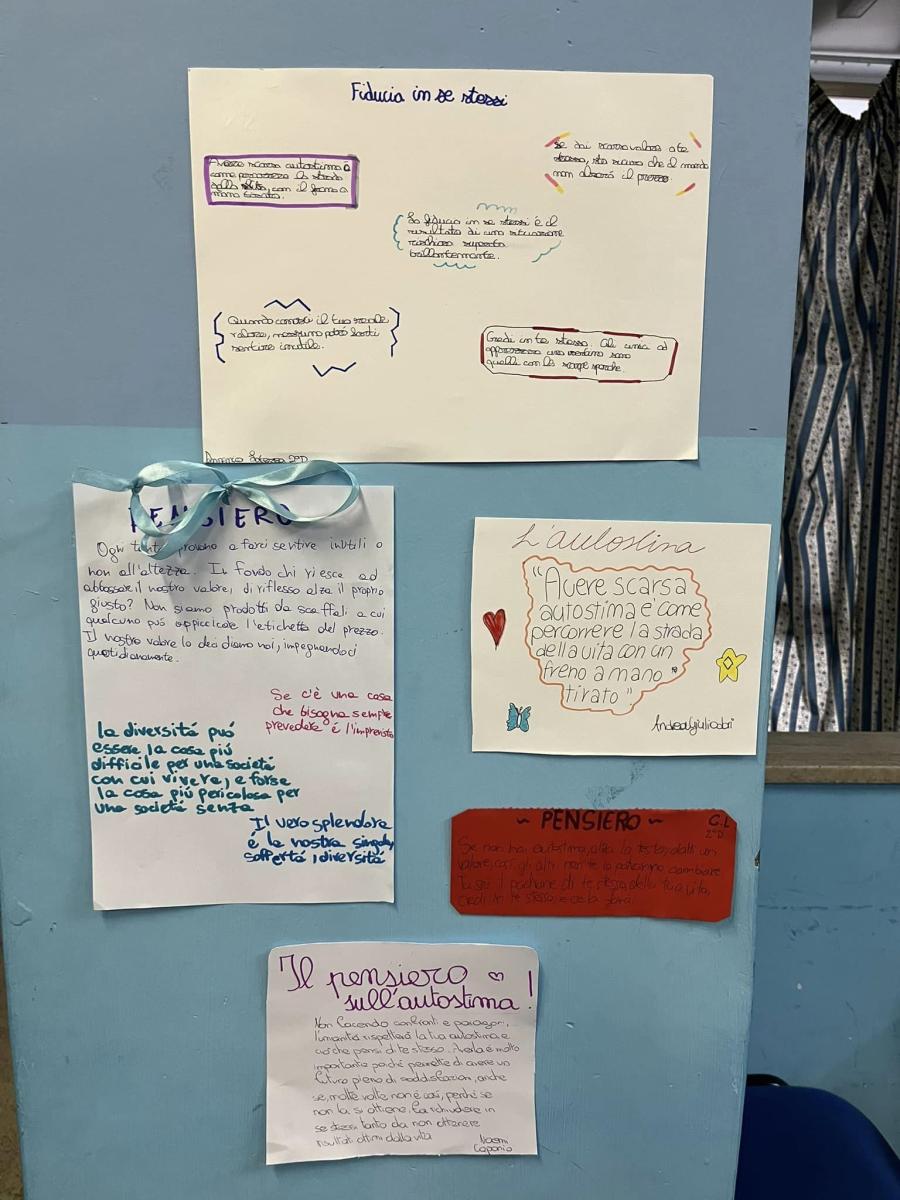 Fiducia in se stessi
Avere scarsa autostima è
come percorrere la strada
della vita, con il freno a
mano tirato.
se dai scarso valore a te
stesso, sta sicuro che il mondo
non alzerà il prezzo.
La fiducia in se stessi é il
risultato di una situazione
rischiosa superata
brillantemente.
Quando conosci il tuo reale
valore, nessuno potrà farti
sentire inutile.
Credi in te stesso. Gli unici ad
apprezzare uno
quelli con le scarpe sporche.
2°D
PENSIERO
Ogni tanto provano a farci sentire inutili o
non all'altezza. In fondo chi riesce ad
abbassare il nostro valore, di riflesso alza il proprio
giusto? Non siamo prodotti da scaffali a cui
qualcuno può appiccicare l'etichetta del prezzo.
Il nostro valore lo decidiamo noi, impegnandoci
quotidianamente.
Se c'è una cosa
che bisogna sempre
prevedere é l'imprevisto
la diversitá puó
essere la cosa piú
difficile per una societá
con cui vivere, e forse
la cosa piú pericolosa per
una societá senza
Il vero splendore
é la nostra
sofferta diversitá
L'autostima
"Avere scarsa
autostima e' come
percorrere la strada
della vita con un
freno a mano
tirato"
~ PENSIERO ~
G.L
2°D
Se non hai autostima, alza la testa, datti un
valore, così gli altri non te lo potranno cambiare.
Tu sei il padrone di te stesso, della tua vita,
credi in te stesso, e ce la farai.
Il pensiero
sull'autostima!
Non facendo confronti e paragoni,
l'umanità rispetterà la tua autostima e
ciò che pensi di te stesso. Averla è molto
importante perché permette di avere un
futuro pieno di soddisfazioni, anche
se, molte volte non è così, perché se
non la si ottiene, fa richiudere in
se stessi tanto da non ottenere
risultati ottimi dalla vita
Noemi
Caponio